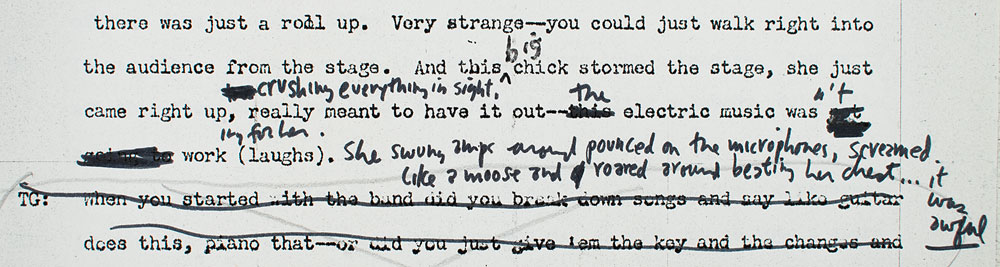 there was just a roll up. Very strange--you could just walk right into
big
the audience from the stage. And this chick stormed the stage, she just
crushing everything in sight, the n't
came right up, really meant to have it out--this electric music was
ing for her.
going to work (laughs). She swung amps around pounced on the microphones, screamed
like a moose and roared around beating her chest... it
was
awful
TG: When you started with the band did you break down songs and say like guitar
does this, piano that--or did you just give 'em the key and the changes and